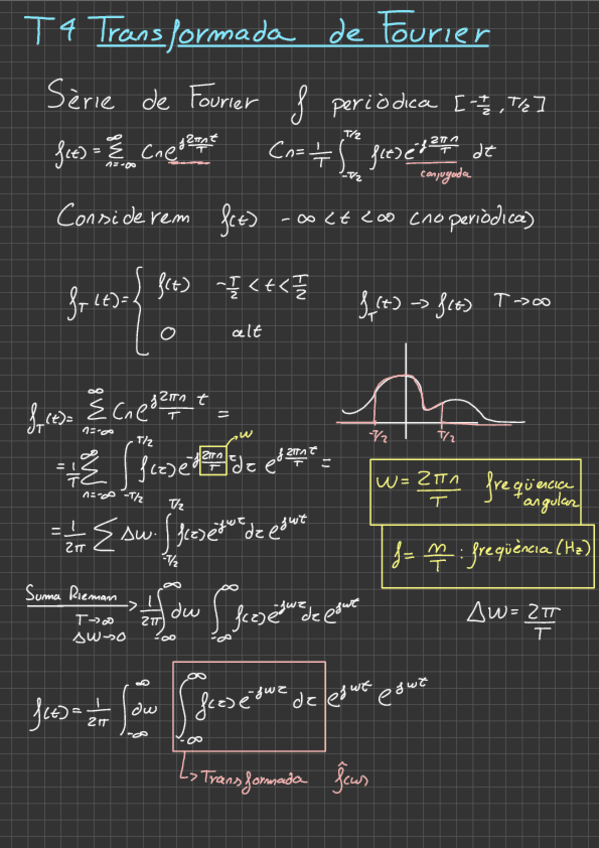 T4 Transformada de Fourier
Sèrie de Fourier f periòdica [-T/2, T/2]
f(t) = ∑_{n=-∞}^{∞} Cn e^{j2πnt/T}    Cn = 1/T ∫_{-T/2}^{T/2} f(t) e^{-j2πn/T} dt
conjugada
Considerem f(t) -∞ < t < ∞ (no periòdica)
f_T(t) = { f(t)   -T/2 < t < T/2    f_T(t) → f(t)   T → ∞
0   alt
-T/2   T/2
f_T(t) = ∑_{n=-∞}^{∞} Cn e^{j2πn/T t} =
w
= 1/T ∑_{n=-∞}^{∞} ∫_{-T/2}^{T/2} f(τ) e^{-j2πn/T τ} dτ e^{j2πnt/T} =
w = 2πn/T freqüència angular
= 1/2π ∑ Δw · ∫_{-T/2}^{T/2} f(τ) e^{-jwτ} dτ e^{jwt}
f = n/T : freqüència (Hz)
Suma Rieman T→∞ Δw→0 > 1/2π ∫_{-∞}^{∞} dw ∫_{-∞}^{∞} f(τ) e^{-jwτ} dτ e^{jwt}
Δw = 2π/T
f(t) = 1/2π ∫_{-∞}^{∞} dw ∫_{-∞}^{∞} f(τ) e^{-jwτ} dτ e^{jwt} e^{jwt}
↳ Transformada f̂(w)